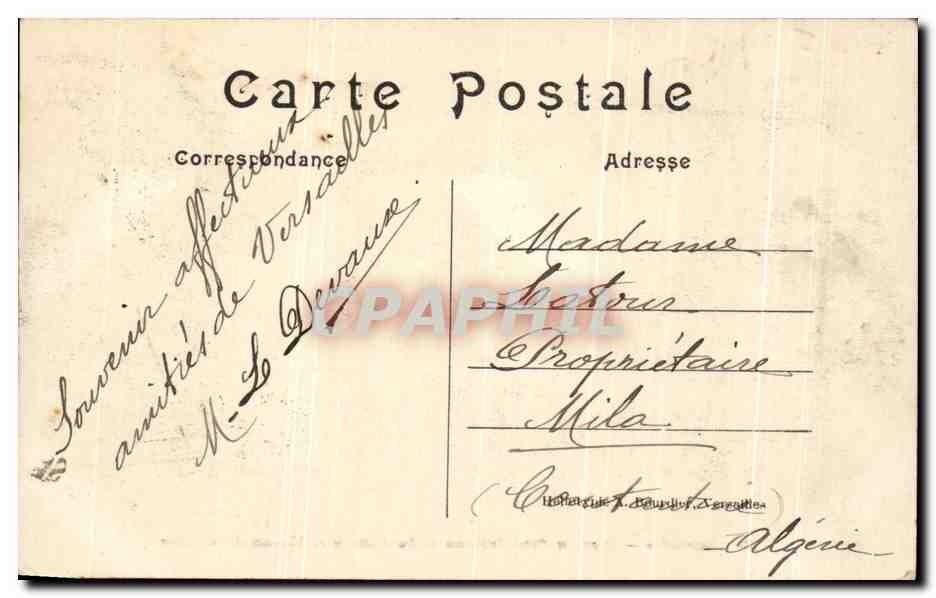 Carte Postale
Correspondance
Adresse
Souvenir affectueux
amitiés de Versailles
M-L Devaux
Madame
Latour
Propriétaire
Mila
(Constantine)
Algérie
CPAPHIL